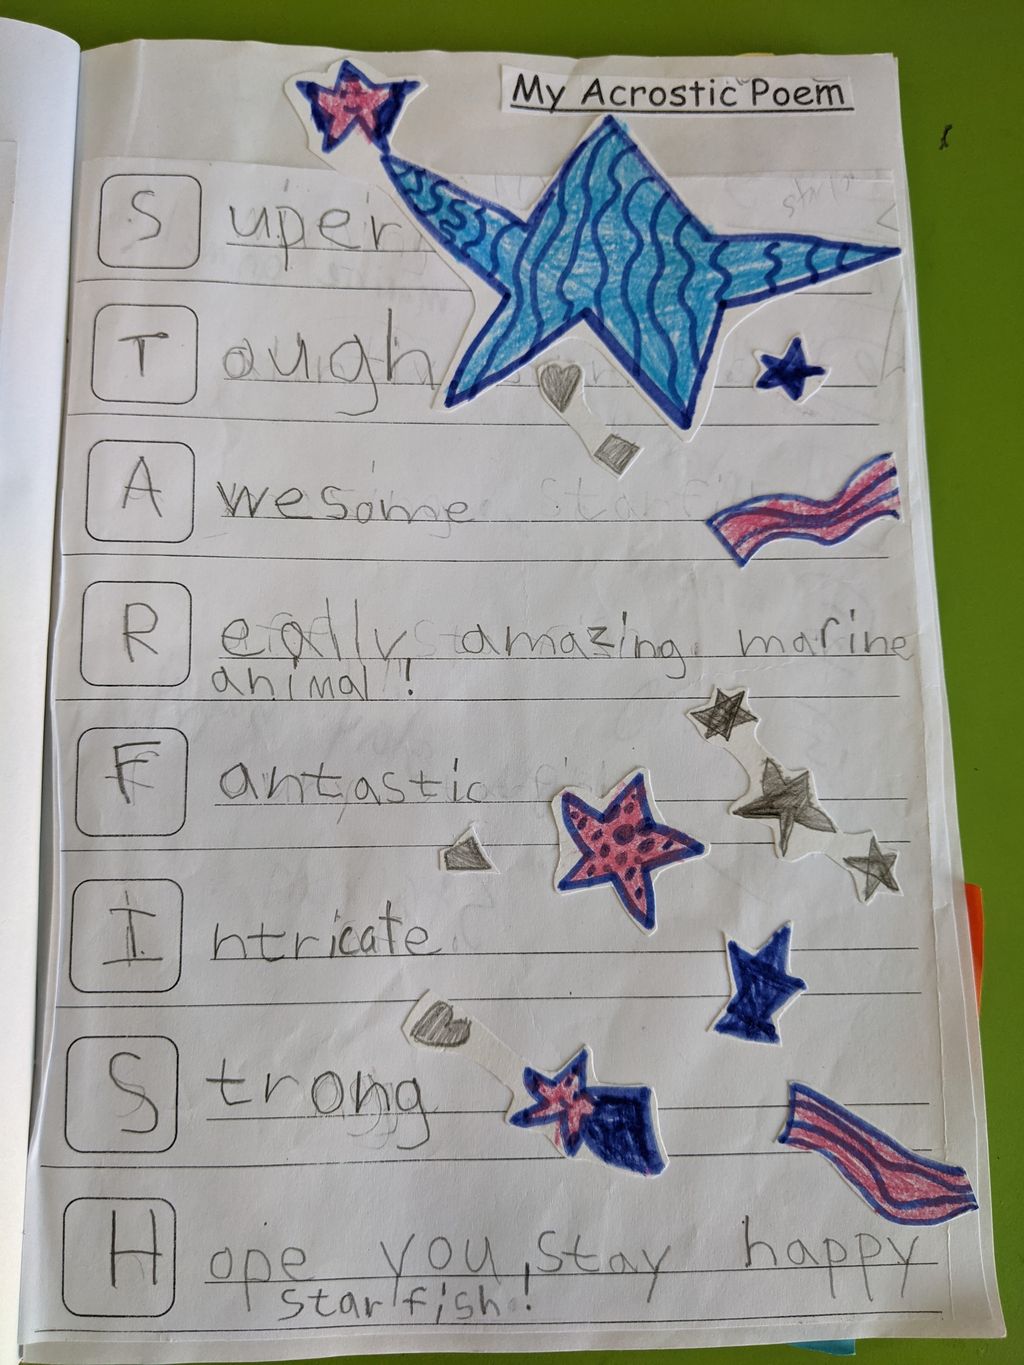 My Acrostic Poem
Super
Tough
Awesome
Really amazing marine
animal!
Fantastic
Intricate
Strong
Hope you stay happy
starfish!